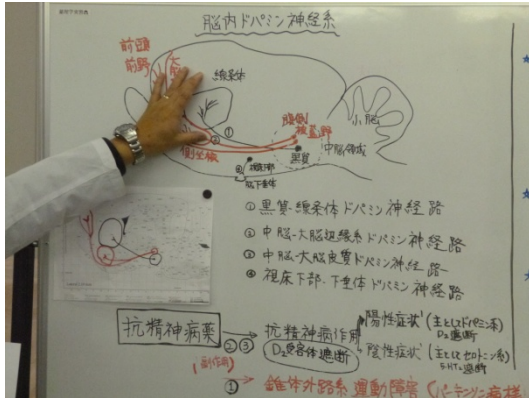 脳内ドパミン神経系
前頭
前野
線条体
①
腹側
被蓋野
小脳
中脳領域
黒質
側坐核
④
視床下部
脳下垂体
① 黒質-線条体ドパミン神経路
② 中脳-大脳辺縁系ドパミン神経路
③ 中脳-大脳皮質ドパミン神経路
④ 視床下部-下垂体ドパミン神経路
抗精神病薬
②③
抗精神病作用
D₂受容体遮断
陽性症状(主としてドパミン系)
D₂遮断
陰性症状(主としてセロトニン系)
5-HT₂遮断
(副作用)
① 錐体外路系運動障害(パーキンソン病様)